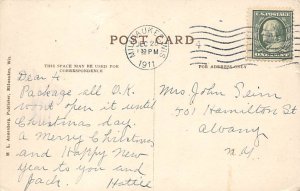 POST CARD
MILWAUKEE, WIS.
DEC 23
30 PM
1911
U.S. POSTAGE
ONE CENT
THIS SPACE MAY BE USED FOR
CORRESPONDENCE
FOR ADDRESS ONLY
Dear
Package all O.K.
wont open it until
Christmas day.
A Merry Christmas
and Happy New
year to you and
Jack. Hattie
Mrs John
701 Hamilton St
Albany
N.Y.
Publisher, Milwaukee, Wis.